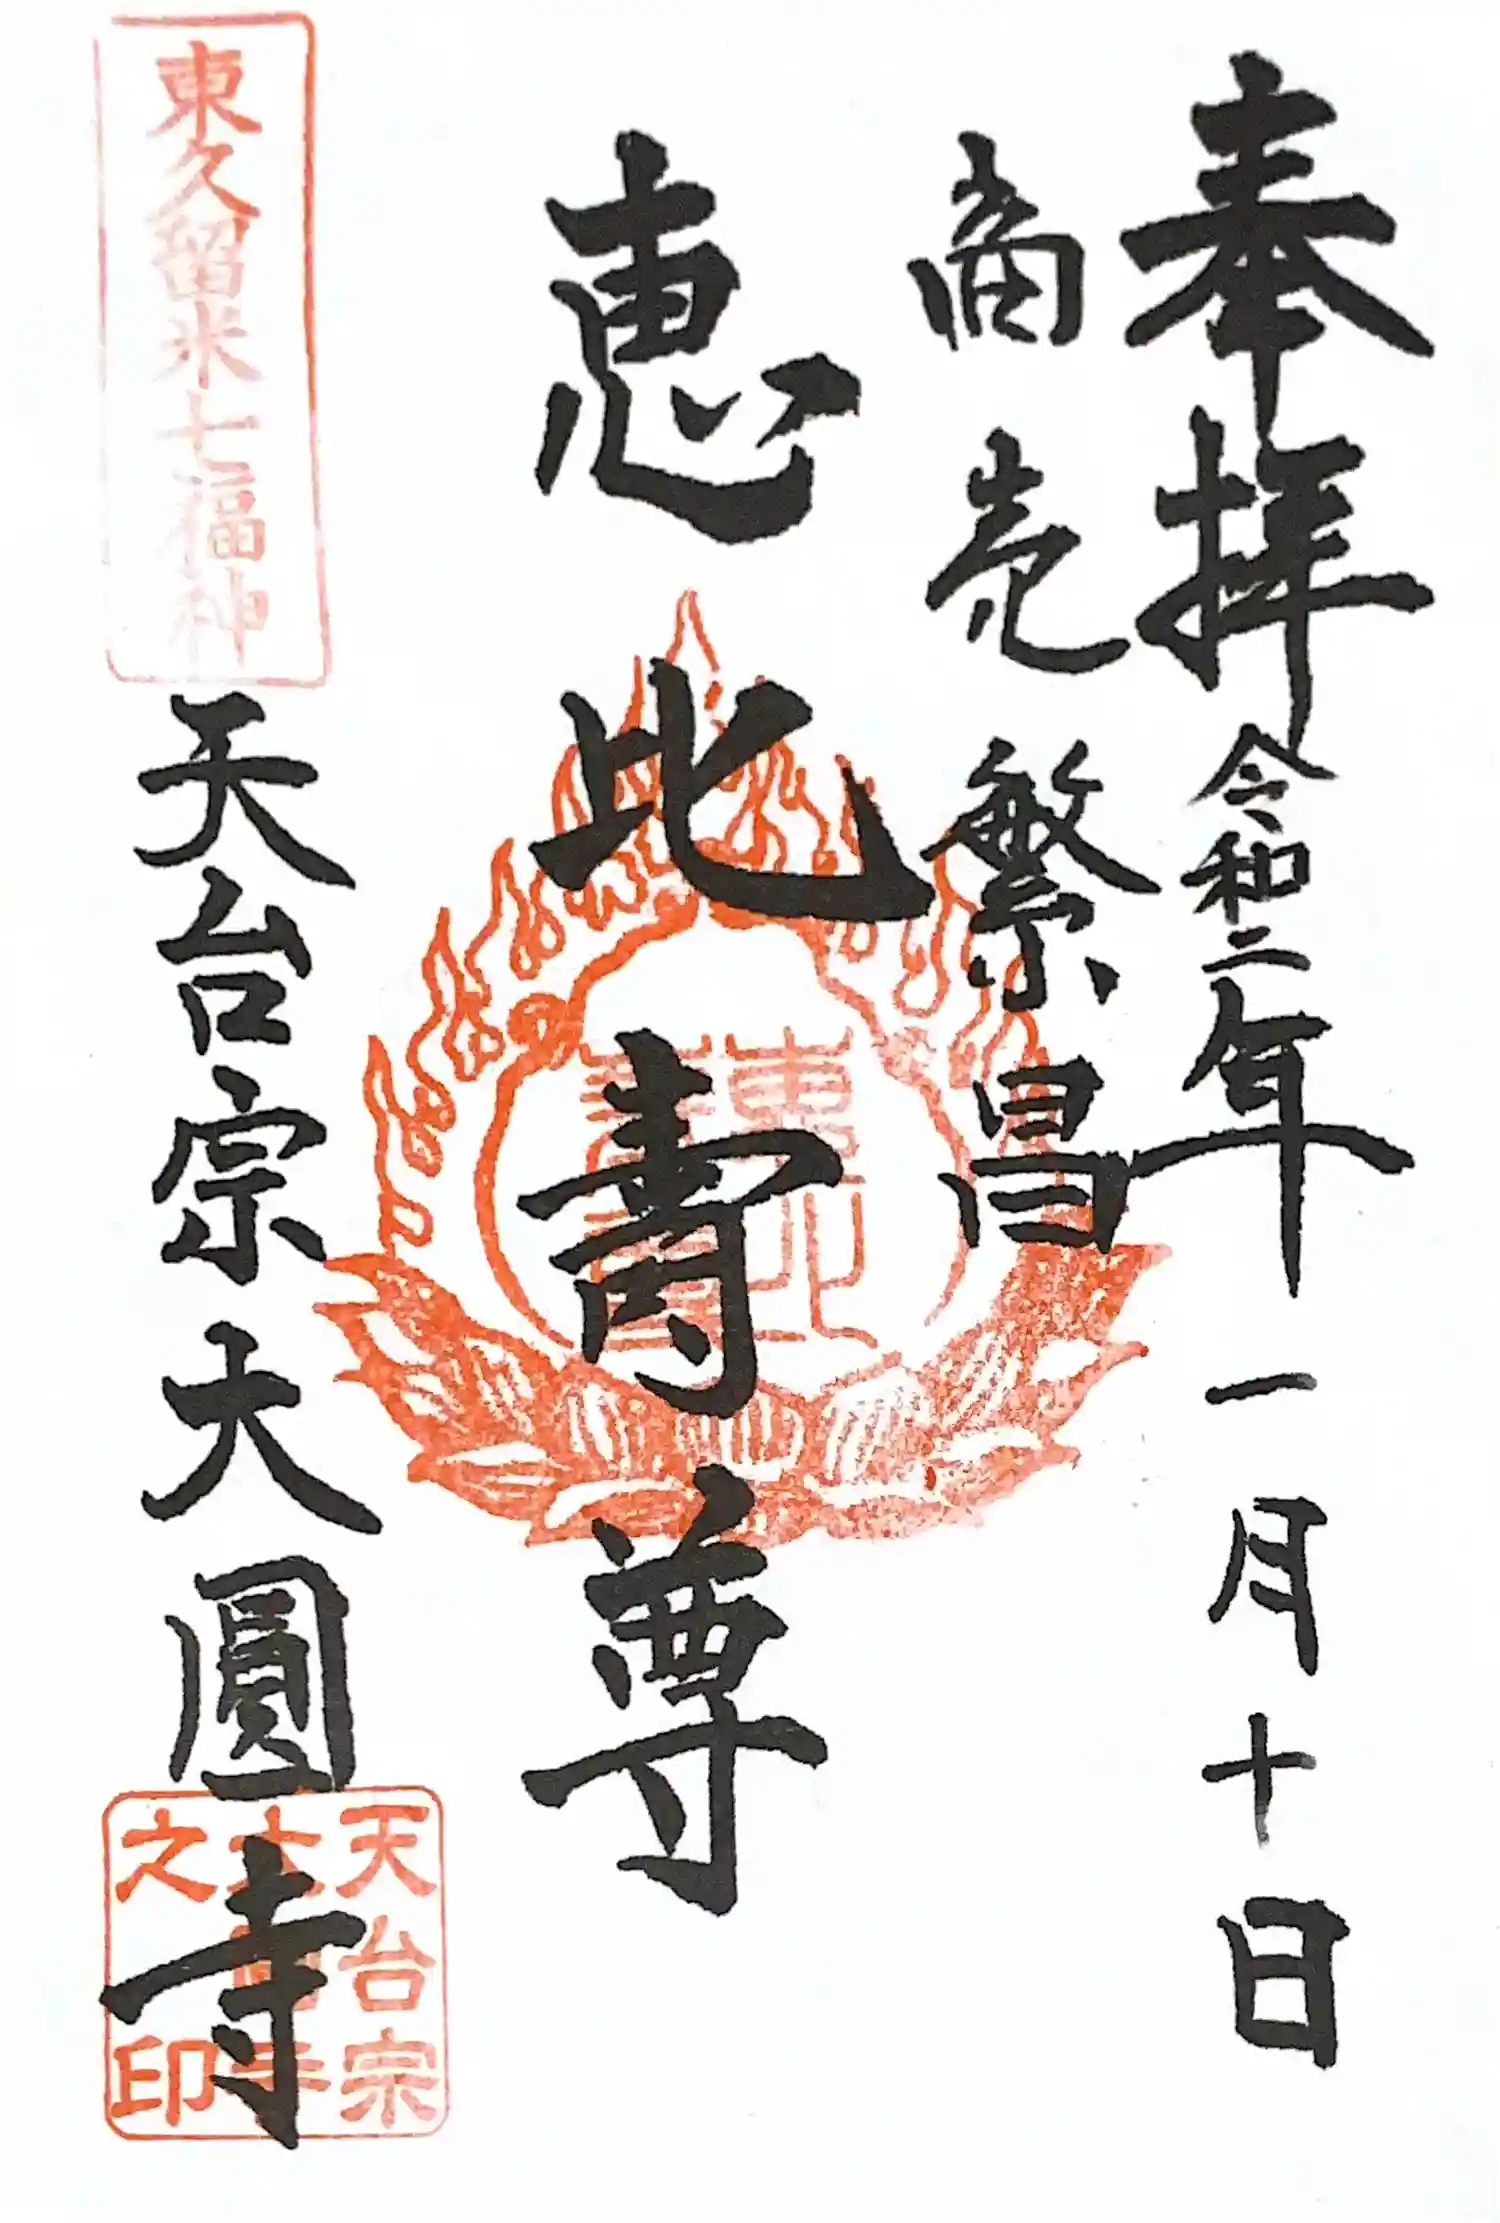 奉拝 令和二年一月十日
商売繁昌
恵比寿尊
東久留米七福神
天台宗大圓寺
天台宗
大圓寺
之印